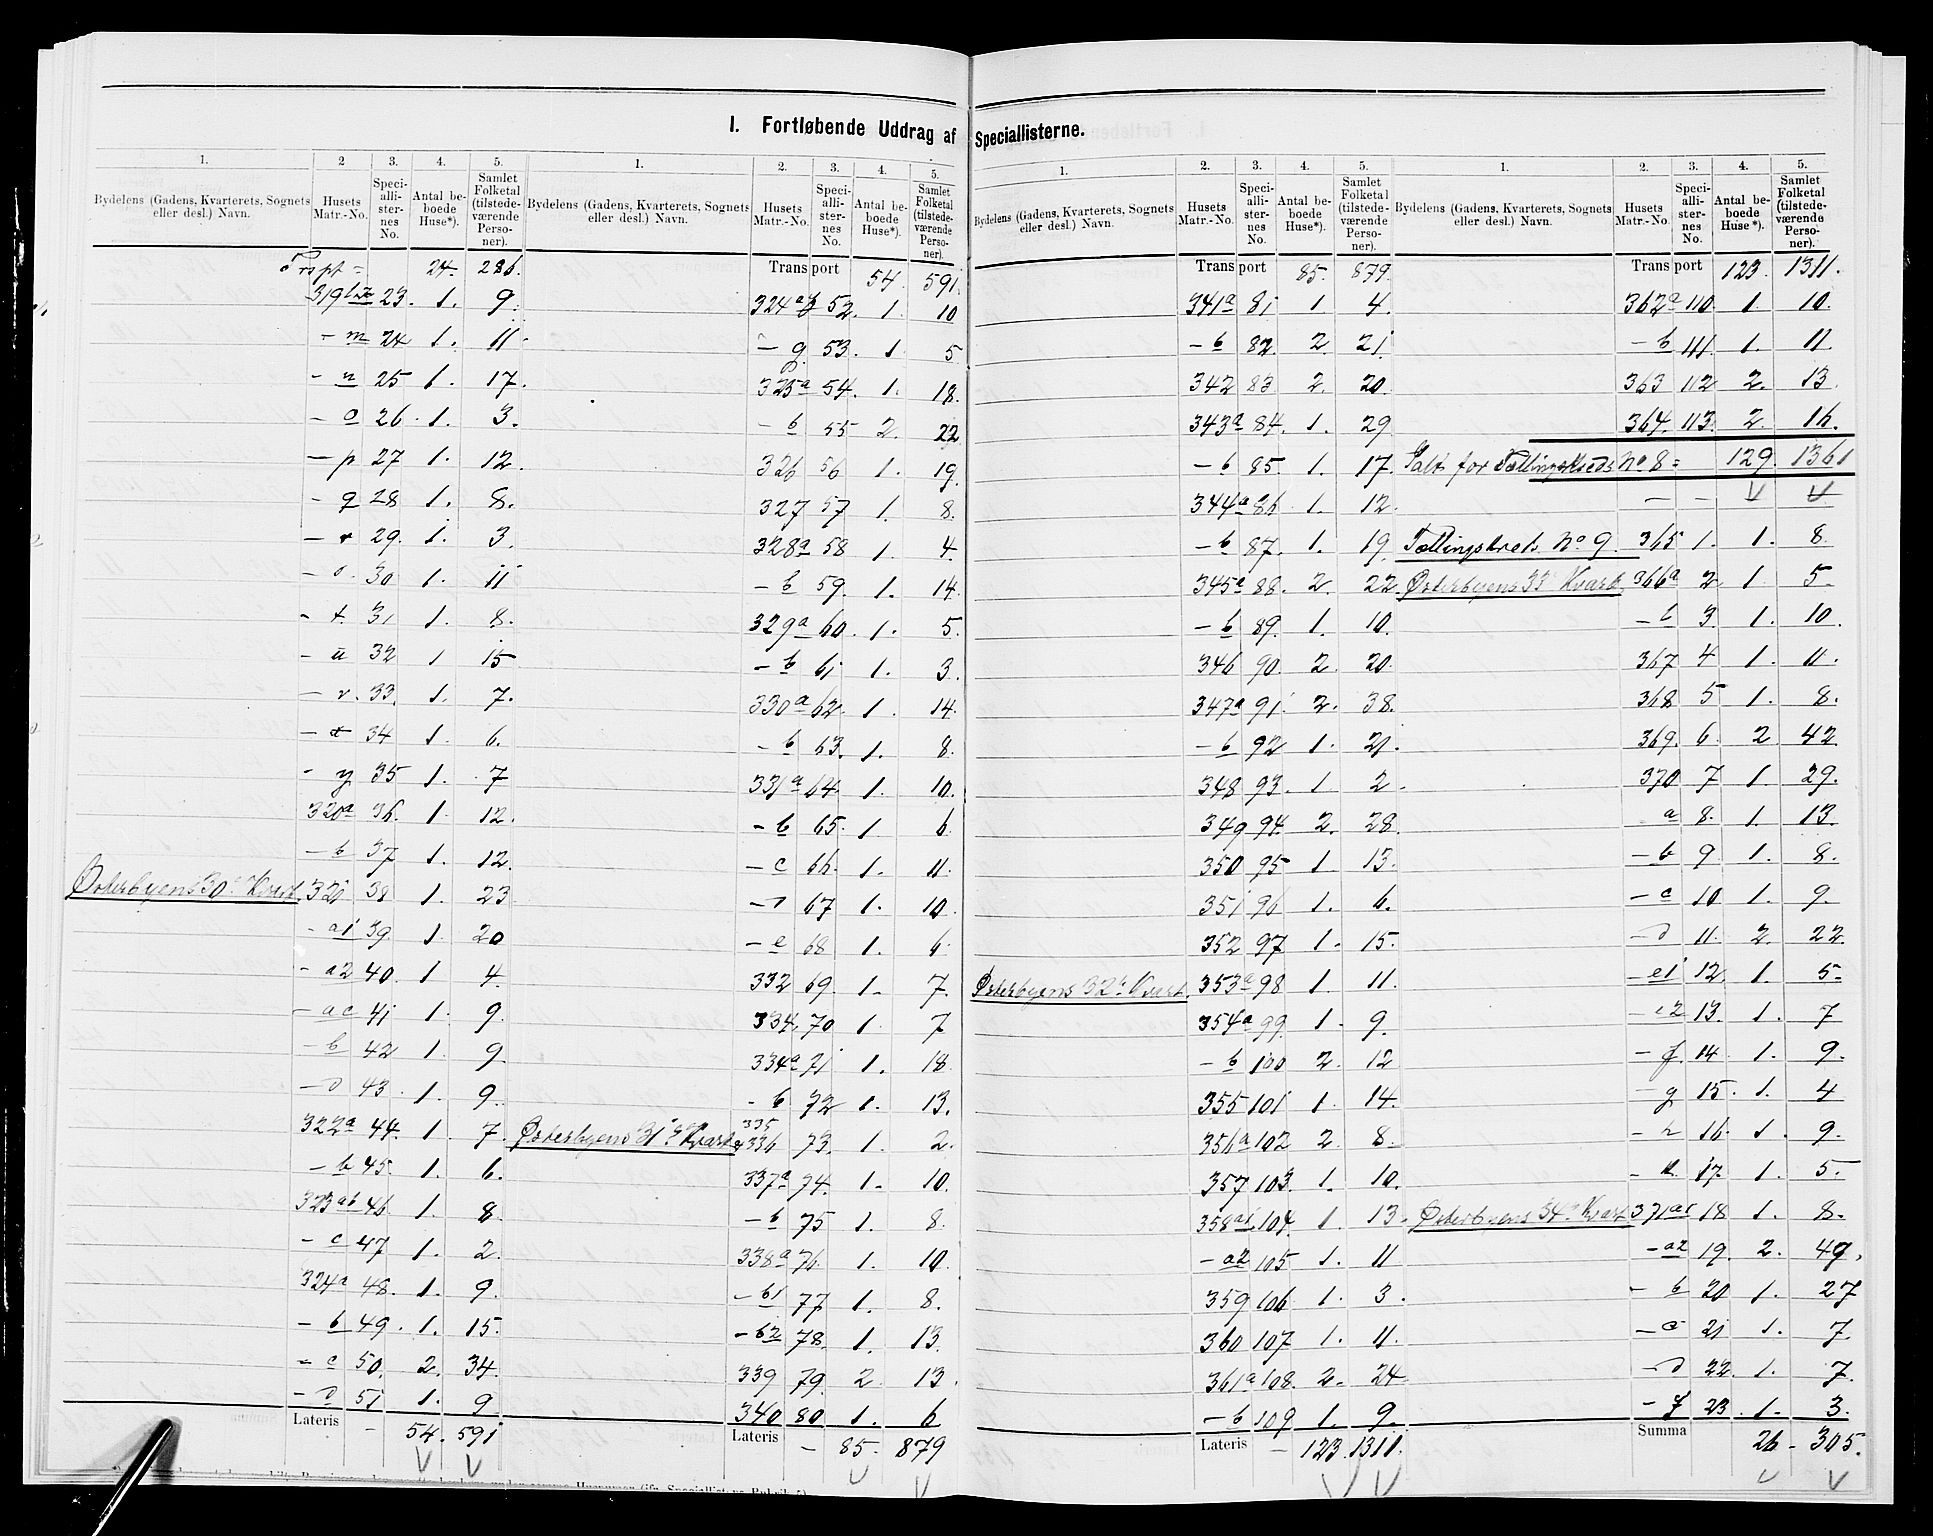 I. Fortløbende Uddrag af Speciallisterne.
1. 2 3. 4. 5.
Bydelens (Gadens, Kvarterets, Sognets eller desl.) Navn. Husets Matr.-No. Speciallisternes No. Antal beboede Huse*). Samlet Folketal (tilstedeværende Personer).
Trspt = 24. 286.
23. 1. 9.
- m 24 1. 11.
- n 25 1. 17.
- o 26. 1. 3.
- p 27 1. 12.
- q 28 1. 8.
- r 29. 1. 3.
- s. 30 1. 11
- t. 31 1. 8.
- u 32 1 15
- v. 33. 1. 7.
- x 34 1. 6.
- y 35 1. 7
320a 36. 1. 12.
- b 37 1. 12.
Østerbyens 30te Kvart. 321 38 1. 23
- a1 39 1. 20
- a2 40. 1 4.
- ac 41 1. 9.
- b 42 1. 9.
- d 43. 1. 9.
322a 44. 1. 7.
- b 45. 1. 6.
323ab 46. 1. 8.
- c 47 1. 2.
324a 48. 1. 9.
- b 49. 1. 15.
- c 50. 2. 34.
- d 51 1. 9.
Lateris - 54. 591
1. 2. 3. 4. 5.
Bydelens (Gadens, Kvarterets, Sognets eller desl.) Navn. Husets Matr.-No. Speciallisternes No. Antal beboede Huse*). Samlet Folketal (tilstedeværende Personer).
Transport 54. 591.
52. 1. 10
- g. 53. 1 5
325a 54. 1. 18.
- b 55 2. 22
326 56 1. 19.
327 57 1. 8.
328a 58 1. 4.
- b 59. 1. 14.
329a 60. 1. 5.
- b 61 1. 3.
330a 62. 1. 14.
- b 63. 1. 8.
331a 64. 1. 10.
- b 65. 1 6.
- c 66. 1. 11.
- d 67 1. 10.
- e 68 1. 6.
332 69. 1. 7.
334. 70 1. 7
334a 71 1. 18.
- b 72 1. 13.
335
Østerbyens 31te Kvart. & 336 73. 1. 2.
337a 74. 1. 10.
- b 75 1. 8.
338a 76. 1. 10.
- b1 77 1. 8.
- b2 78. 1. 13.
339 79. 2. 13.
340 80 1. 6
Lateris - 85. 879
1. 2. 3. 4. 5.
Bydelens (Gadens, Kvarterets, Sognets eller desl.) Navn. Husets Matr.-No. Speciallisternes No. Antal beboede Huse*). Samlet Folketal (tilstedeværende Personer).
Transport 85. 879.
341a 81 1. 4.
- b 82. 2. 21.
342 83 2. 20.
343a 84. 1. 29
- b 85. 1. 17.
344a 86. 1. 12.
- b 87. 1. 19.
345a 88. 2. 22.
- b 89. 1. 10.
346 90. 2. 20.
347a 91. 2. 38.
- b 92 1. 21.
348 93. 1 2.
349 94. 2. 28.
350 95 1. 13.
351 96 1. 6.
352 97 1. 15.
Østerbyens 32te Kvart. 353a 98 1. 11.
354a 99. 1. 9.
- b 100 2. 12
355 101 1. 14.
356a 102 2. 8.
357 103. 1. 10.
358a1 104. 1. 13.
- a2 105 1. 11
359 106 1. 3.
360 107 1. 11.
361a 108. 2. 24
- b 109 1. 9.
Lateris - 123. 1311.
1. 2. 3. 4. 5.
Bydelens (Gadens, Kvarterets, Sognets eller desl.) Navn. Husets Matr.-No. Speciallisternes No. Antal beboede Huse*). Samlet Folketal (tilstedeværende Personer).
Transport 123. 1311.
362a 110. 1 10.
- b 111. 1. 11.
363 112 2. 13.
364. 113. 2. 16.
Ialt for Tællingskreds No 8 = 129. 1361
Tællingskreds. No 9. 365 1. 1. 8.
Østerbyens 33te Kvart. 366a 2 1. 5.
- b 3. 1. 10.
367 4 1. 11.
368 5 1. 8.
369. 6. 2 42.
370 7 1. 29.
a 8. 1. 13.
- b 9 1. 8.
- c 10 1. 9.
- d 11. 2. 22.
- e1 12. 1. 5-
- e2 13. 1. 7
- f. 14. 1. 9.
- g 15. 1. 4
- h 16. 1. 9.
17. 1. 5.
Østerbyens 34te Kvart. 371a1 18 1. 8.
- a2 19. 2. 49.
- b 20 1. 27
- c 21 1. 7.
- d 22. 1. 7.
- f 23. 1. 3.
Summa 26 - 305.